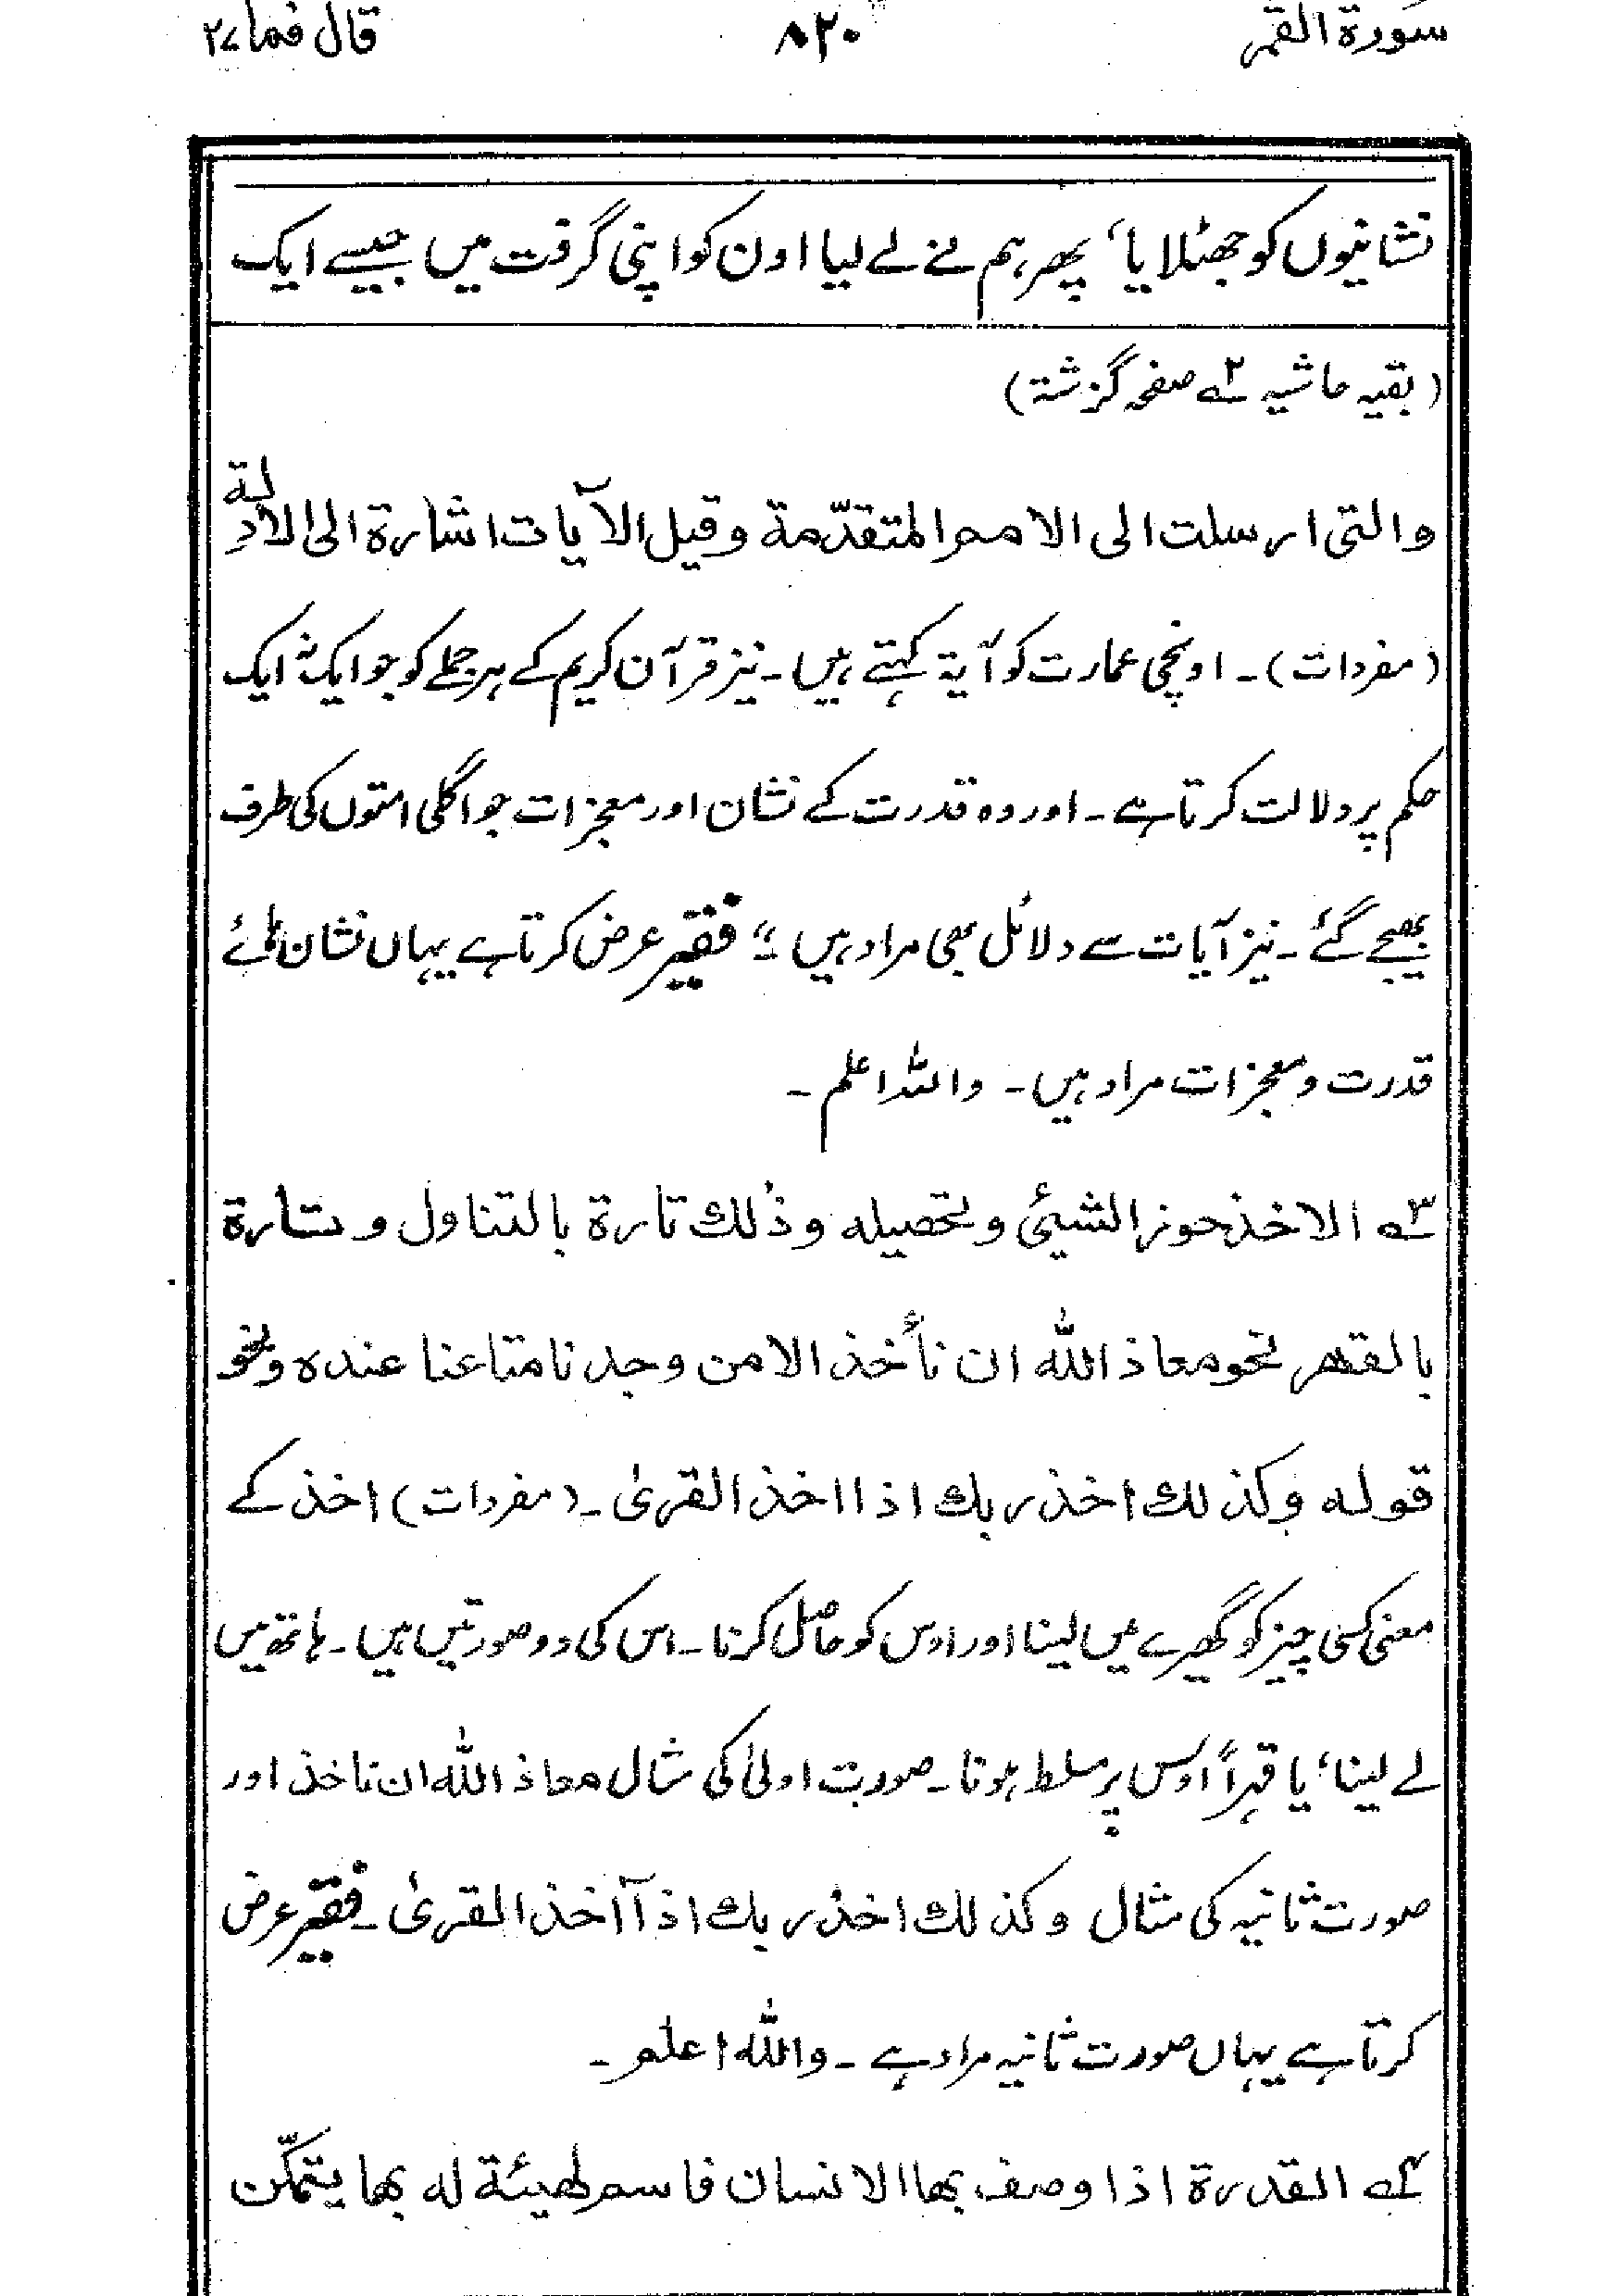 سورة القمر ۸۲۰ قال فما ۲۷
نشانیوں کو جھٹلایا، پھر ہم نے لے لیا اون کو اپنی گرفت میں جیسے ایک
(بقیہ حاشیہ ۲؎ صفحہ گزشتہ)
والتی ارسلت الی الامم المتقدّمة وقیل الآیات اشارة الی الادلة
(مفردات)۔ اونچی عمارت کو آیة کہتے ہیں۔ نیز قرآن کریم کے ہر جملے کو جو ایک ایک
حکم پر دلالت کرتا ہے۔ اور وہ قدرت کے نشان اور معجزات جو اگلی امتوں کی طرف
بھیجے گئے۔ نیز آیات سے دلائل بھی مراد ہیں ؛" فقیر عرض کرتا ہے یہاں نشان ہائے
قدرت و معجزات مراد ہیں۔ واللہ اعلم۔
۳؎ الاخذ حوز الشیئ وتحصیله وذٰلك تارة بالتناول وتارة
بالقهر نحو معاذ الله ان نأخذ الا من وجدنا متاعنا عنده ونحو
قوله وکذلك اخذ ربك اذا اخذ القریٰ۔ (مفردات) اخذ کے
معنی کسی چیز کو گھیرے میں لینا اور اوس کو حاصل کرنا۔ اس کی دو صورتیں ہیں۔ ہاتھ میں
لے لینا، یا قہراً اوس پر مسلط ہونا۔ صورت اولیٰ کی مثال معاذ الله ان ناخذ اور
صورت ثانیہ کی مثال وکذلك اخذ ربك اذآ اخذ القریٰ۔ فقیر عرض
کرتا ہے یہاں صورت ثانیہ مراد ہے۔ والله اعلم۔
۴؎ القدرة اذا وصف بها الانسان فاسم لهیئة له بها یتمکّن